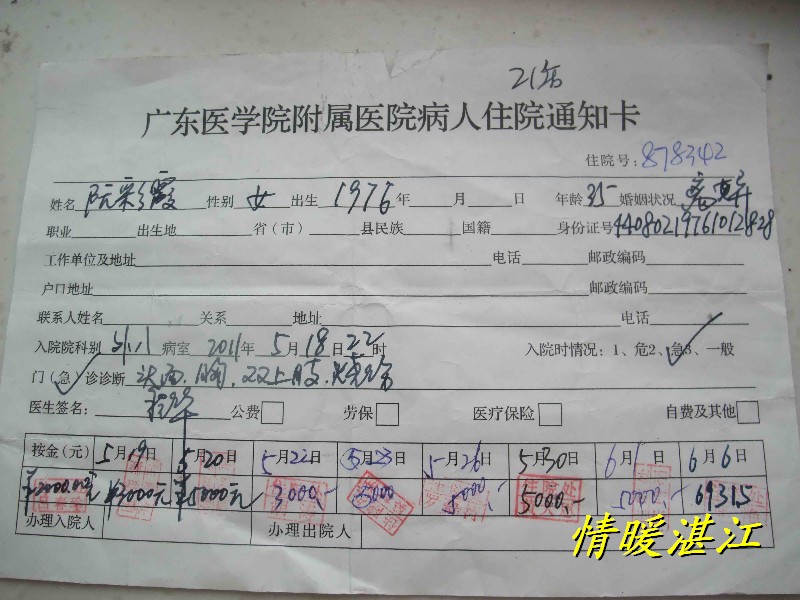 21分
广东医学院附属医院病人住院通知卡
住院号:878342
姓名 阮彩霞 性别 女 出生 1976 年 月 日 年龄 35 婚姻状况
职业 出生地 省(市) 县民族 国籍 身份证号 440802197610121828
工作单位及地址 电话 邮政编码
户口地址 邮政编码
联系人姓名 关系 地址 电话
入院院科别 外八 病室 2011年 5月 18日 22时 入院时情况:1、危2、急3、一般
门(急)诊诊断 头面、胸、双上肢
医生签名: 公费 劳保 医疗保险 自费及其他
按金(元) 5月19日 5月20日 5月22日 5月23日 5月26日 5月30日 6月1日 6月6日
¥2000.00元 ¥3000元 ¥5000元 3000,- 5000 5000,- 5000,- 5000,- 69315
办理入院人 办理出院人
情暖湛江